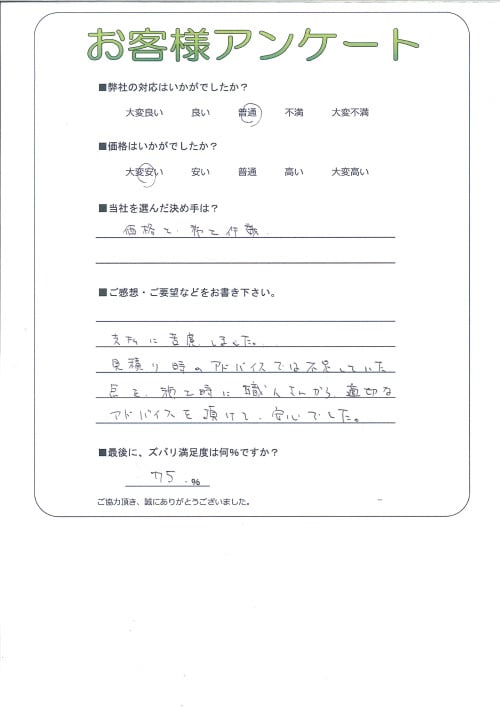 お客様アンケート
■弊社の対応はいかがでしたか?
大変良い 良い 普通 不満 大変不満
■価格はいかがでしたか?
大変安い 安い 普通 高い 大変高い
■当社を選んだ決め手は?
価格と、施工件数
■ご感想・ご要望などをお書き下さい。
に苦慮しました。
見積り時のアドバイスでは不足していた
点を、施工時に職人さんから適切な
アドバイスを頂けて、安心でした。
■最後に、ズバリ満足度は何%ですか?
75 .%
ご協力頂き、誠にありがとうございました。